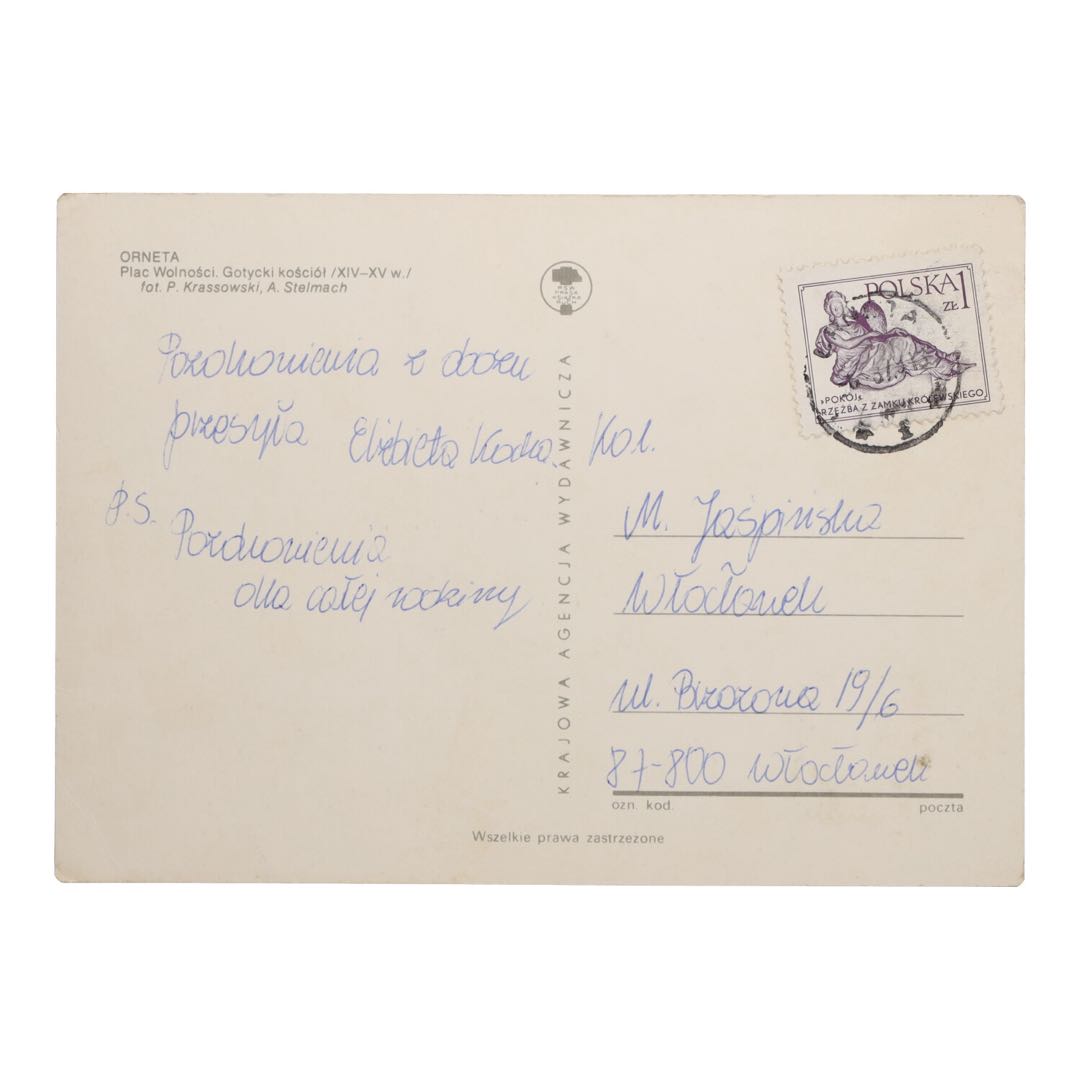 ORNETA
Plac Wolności. Gotycki kościół /XIV–XV w./
fot. P. Krassowski, A. Stelmach
Pozdrowienia z obozu
przesyła Elżbieta
P.S. Pozdrowienia
dla całej rodziny
KRAJOWA AGENCJA WYDAWNICZA
RSW
PRASA
KSIĄŻKA
RUCH
POLSKA 1
ZŁ
»POKÓJ«
RZEŹBA Z ZAMKU KRÓLEWSKIEGO
Kol.
M. Jaśpińska
Włocławek
ul. Brzozowa 19/6
87-800 Włocławek
ozn. kod. poczta
Wszelkie prawa zastrzeżone